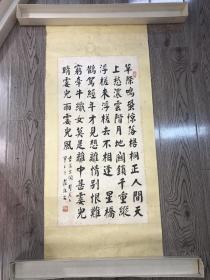 草際鳴蛩驚落梧桐正人間天
上愁濃雲階月地關鎖千重縱
浮槎來浮槎去不相逢星橋
鵲駕經年才見想離情別恨難
窮牽牛織女莫是離中甚霎兒
晴霎兒雨霎兒風